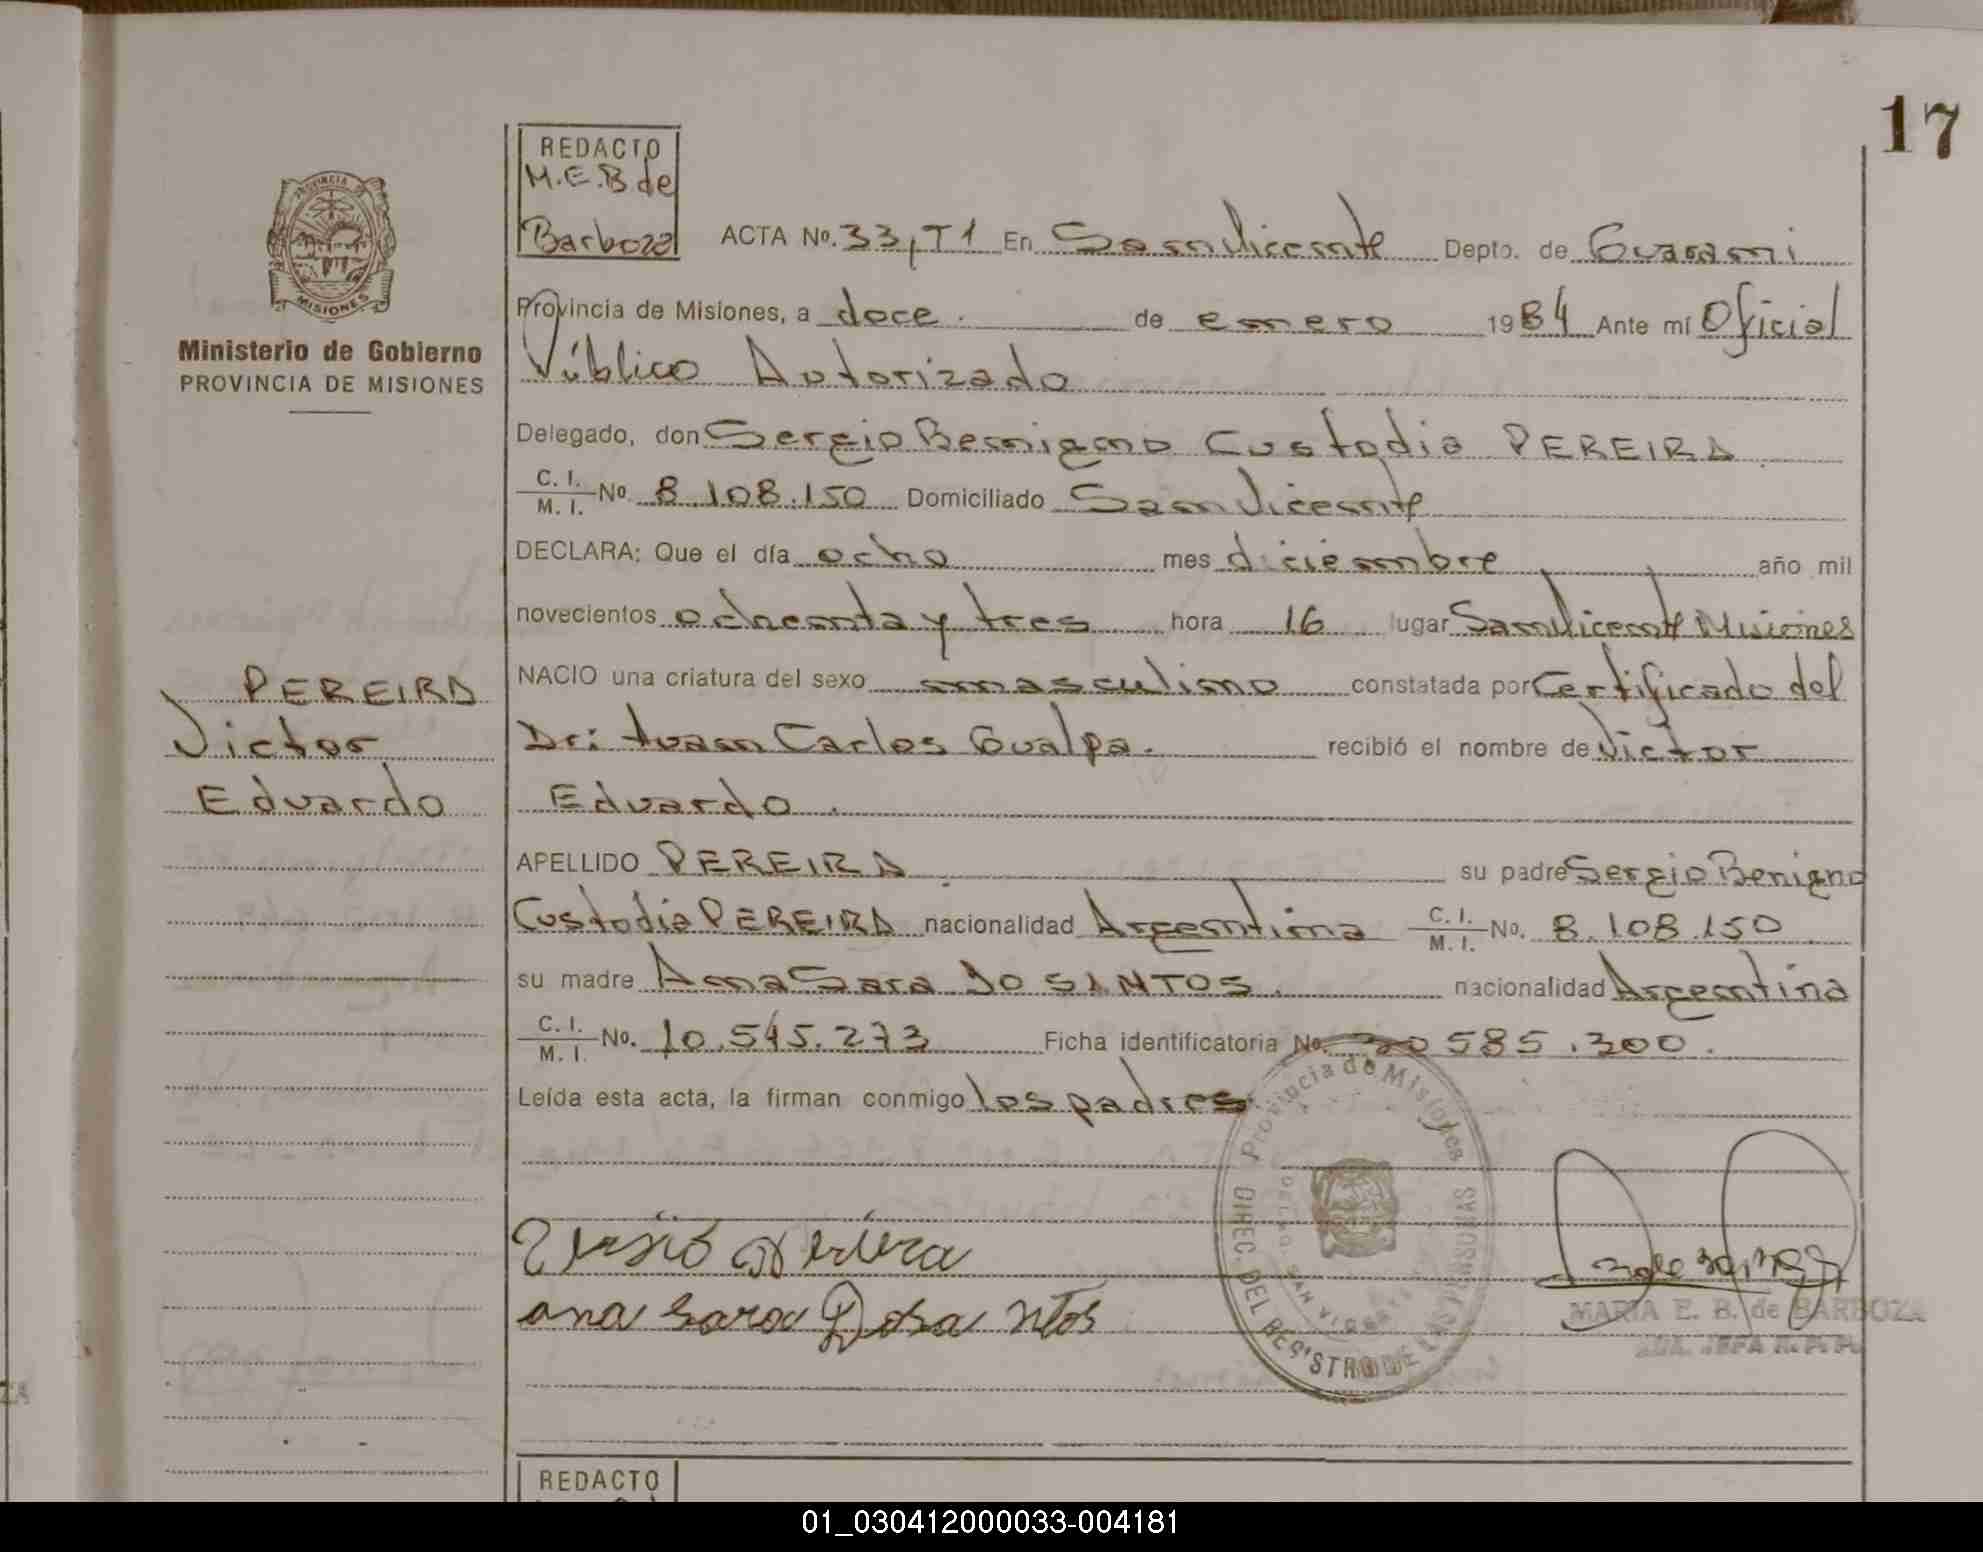 17
REDACTO
M.E.B de
Barboza
ACTA No. 33, T1 En San Vicente Depto. de Guarani
Provincia de Misiones, a doce. de enero 1984 Ante mí Oficial
Público Autorizado
Delegado, don Sergio Benigno Custodia PEREIRA
C. I. M. I. No 8.108.150 Domiciliado San Vicente
DECLARA: Que el día ocho mes diciembre año mil
novecientos ochenta y tres hora 16 lugar San Vicente Misiones
NACIO una criatura del sexo masculino constatada por Certificado del
Dr: Juan Carlos Gualpa. recibió el nombre de Victor
Eduardo.
APELLIDO PEREIRA su padre Sergio Benigno
Custodia PEREIRA nacionalidad Argentina C. I. M. I. No. 8.108.150
su madre Ana Sara DO SANTOS. nacionalidad Argentina
C. I. M. I. No. 10.545.273 Ficha identificatoria No. 30 585.300.
Leída esta acta, la firman conmigo los padres
PROVINCIA DE MISIONES
Ministerio de Gobierno
PROVINCIA DE MISIONES
PEREIRA
Victor
Eduardo
Pereira
ana sara Dosa ntos
Provincia de Misiones
DIREC. DEL REG'STRO DE LAS PERSONAS
SAN VICENTE
MARIA E. B. de BARBOZA
REDACTO
01_030412000033-004181